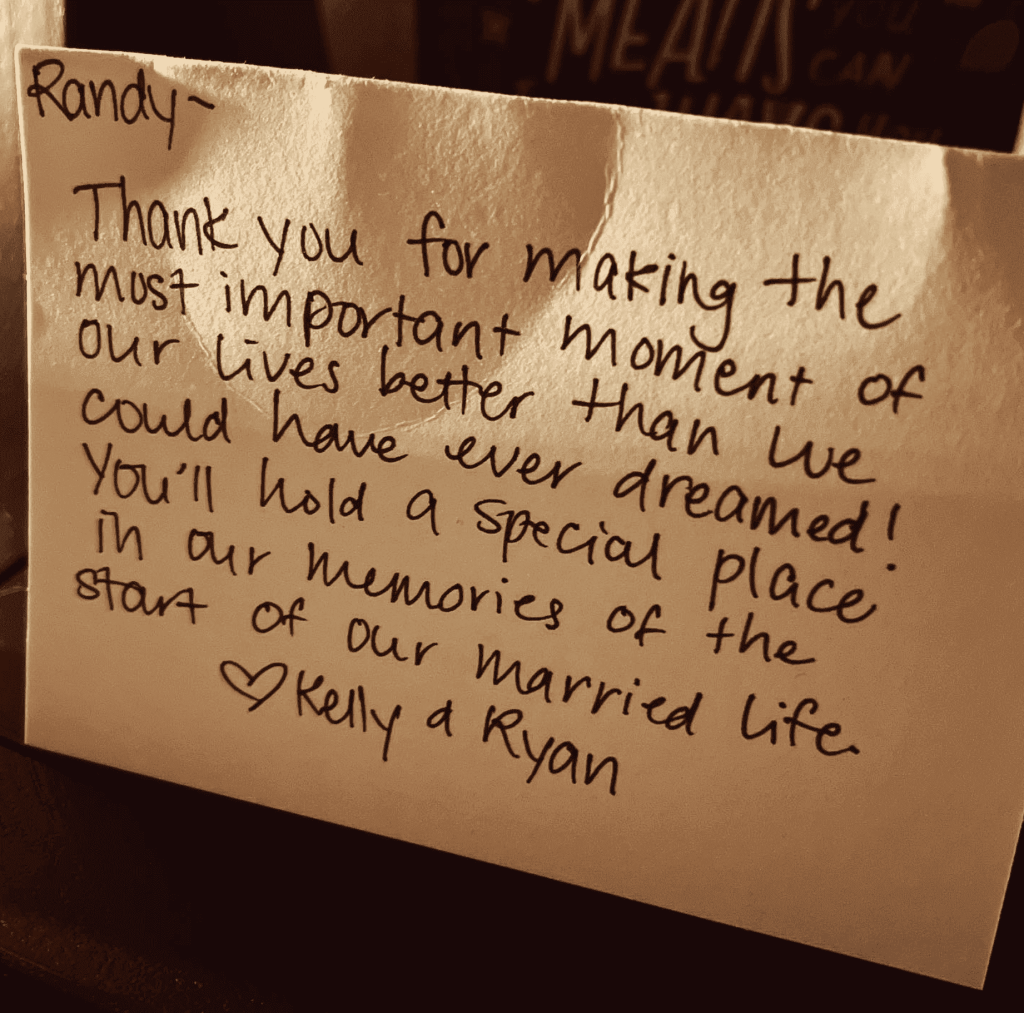 MEANS YOU
CAN
Randy~
Thank you for making the
most important moment of
our lives better than we
could have ever dreamed!
You'll hold a special place
in our memories of the
start of our married life.
♡ Kelly & Ryan